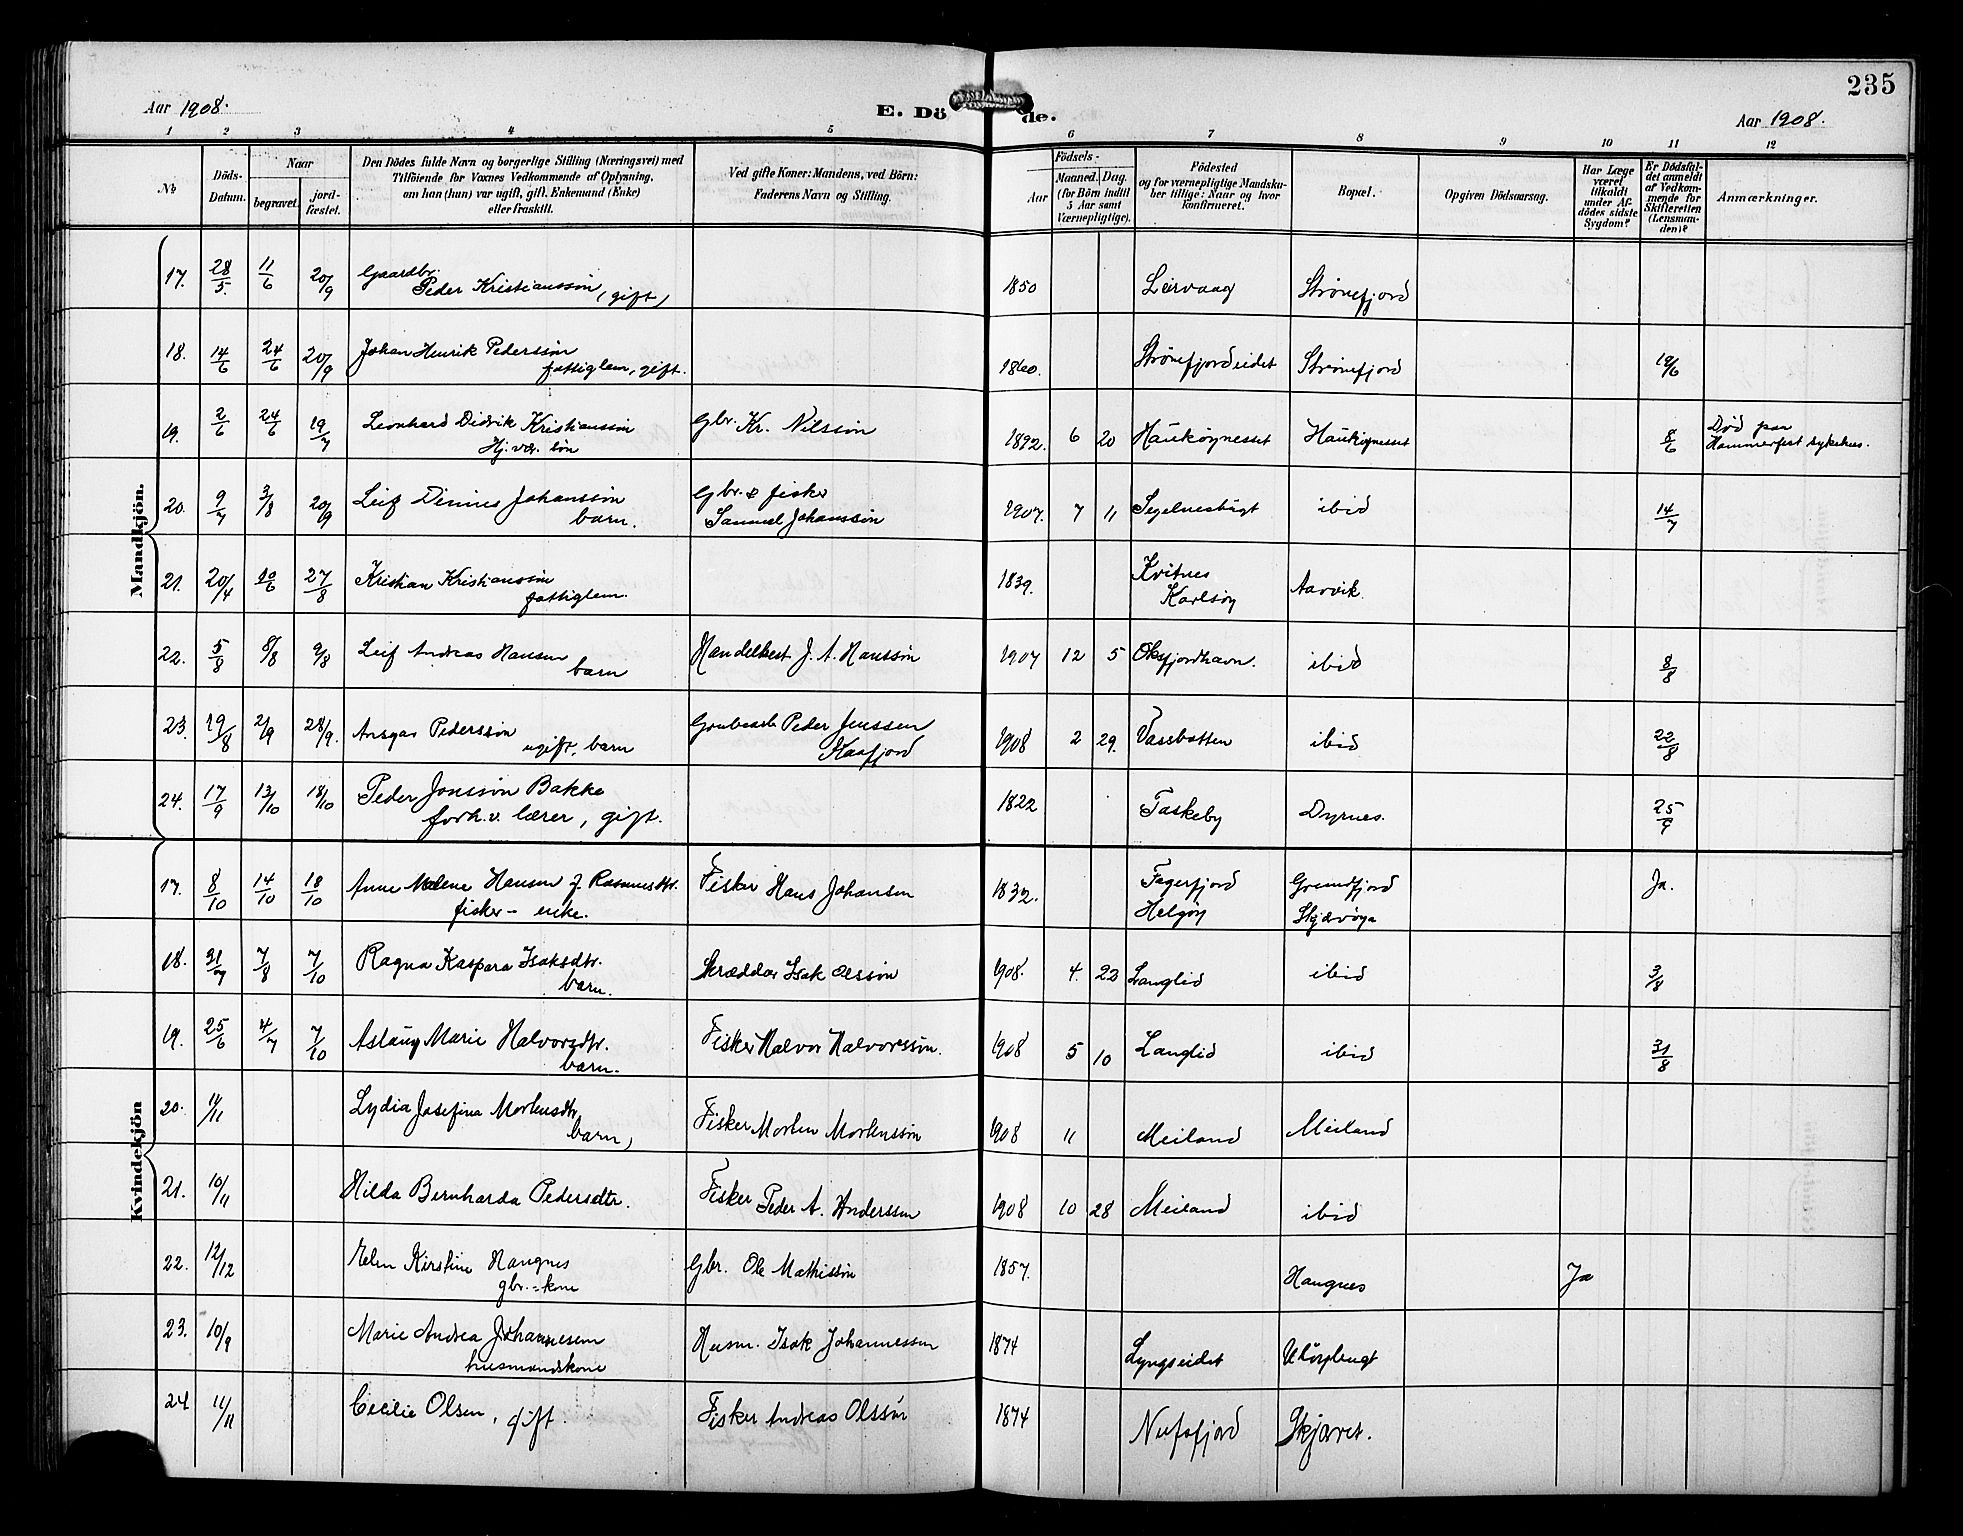 235
Aar 1908.
E. Dö de.
Aar 1908.
1 2 3 4 5 6 7 8 9 10 11 12
№
Döds-Datum.
Naar
begravet.
jord-fæstet.
Den Dödes fulde Navn og borgerlige Stilling (Næringsvei) med
Tilföiende for Voxnes Vedkommende af Oplysning,
om han (hun) var ugift, gift, Enkemand (Enke)
eller fraskilt.
Ved gifte Koner: Mandens, ved Börn:
Faderens Navn og Stilling.
Födsels-
Aar
Maaned. Dag.
(for Börn indtil
5 Aar samt
Værnepligtige).
Födested
og for værnepligtige Mandsku-
ber tillige: Naar og hvor
konfirmeret.
Bopæl.
Opgiven Dödsaarsag.
Har Læge
været
tilkaldt
under Af-
dödes sidste
Sygdom?
Er Dödsfal-
det anmeldt
af Vedkom-
mende for
Skifteretten
(Lensman-
den)?
Anmærkninger.
Mandkjön.
17. 28/5. 11/6 20/9 Gaardbr. Peder Kristianssøn, (gift) 1850 Leirvaag Strømefjord
18. 14/6 24/6 20/9 Johan Henrik Pederssøn fattiglem, gift. 1860. Strømefjordeidet Strømefjord 19/6
19. 2/6 24/6 19/7 Leonhard Didrik Kristianssøn Hj. vær. søn Gbr. Kr. Nilssøn 1892. 6 20 Haukøynesset Haukøynesset 8/6 Død paa Hammerfest sykehus.
20. 9/7 3/8 20/9 Leif Dinnes Johanssøn barn. Gbr. & fisker Samuel Johanssøn 1907. 7 11 Segelnesbugt ibid 14/7
21. 20/4 20/6 27/8 Kristian Kristianssøn fattiglem. 1839. Kvitnes Karlsøy Aarvik.
22. 5/8 8/8 9/8 Leif Andreas Hansen barn Handelsbest J. A. Hanssøn 1907 12 5 Oksfjordhavn. ibid 8/8
23. 19/8 2/9 28/9. Ansgar Pederssøn ugift, barn Grubearb Peder Jenssen Kaafjord 1908 2 29. Vassbotten ibid 22/8
24. 17/9 13/10 18/10 Peder Jonssøn Bakke forh.v. lærer, gift. 1822 Taskeby Dyrnes. 25/9
Kvindekjön
17. 8/10 14/10 18/10 Anne Malene Hansen f. Rasmusdtr. fisker- enke. Fisker Hans Johansen 1832. Fagerfjord Helgøy Grundfjord Skjærvøya Ja.
18. 31/7 7/8 7/10 Ragna Kaspara Isaksdtr. barn. Skrædder Isak Olssøn 1908. 4. 22 Langlid ibid 3/8
19. 25/6 4/7 7/10 Aslaug Marie Halvorsdtr. barn. Fisker Halvor Halvorssøn. 1908 5 10 Langlid ibid 31/8
20. 14/11 Lydia Josefina Mortensdtr barn, Fisker Morten Mortenssøn 1908 11 Meiland Meiland
21. 10/11 Hilda Bernharda Pedersdtr. Fisker Peder A. Anderssen 1908 10 28 Meiland ibid
22. 12/12 Elen Kirstine Hangnes gbr.=kone Gbr. Ole Mathissøn 1857. Hangnes Ja
23. 10/9 Marie Andrea Johannesen husmandskone Husm. Isak Johannessen 1874 Lyngseidet Uløybugt
24 11/11 Cecilie Olsen, gift. Fisker Andreas Olssøn 1874 Nufsfjord Skjæret.